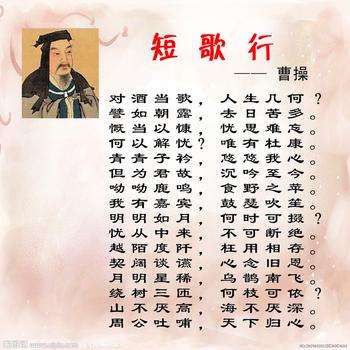 短歌行
—— 曹操
对酒当歌，人生几何？
譬如朝露，去日苦多。
慨当以慷，忧思难忘。
何以解忧？唯有杜康。
青青子衿，悠悠我心。
但为君故，沉吟至今。
呦呦鹿鸣，食野之苹。
我有嘉宾，鼓瑟吹笙。
明明如月，何时可掇？
忧从中来，不可断绝。
越陌度阡，枉用相存。
契阔谈讌，心念旧恩。
月明星稀，乌鹊南飞。
绕树三匝，何枝可依？
山不厌高，海不厌深。
周公吐哺，天下归心。